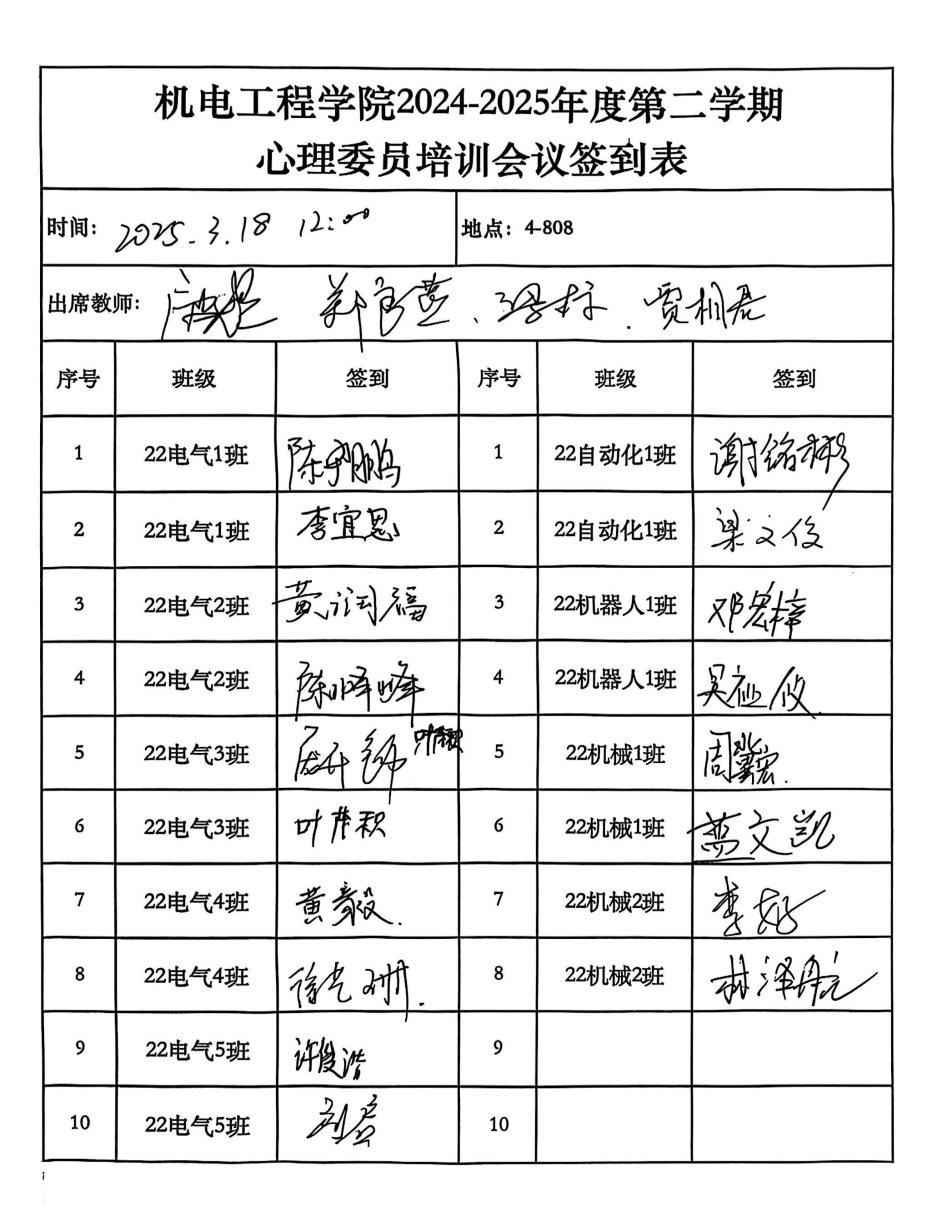 机电工程学院2024-2025年度第二学期
心理委员培训会议签到表
时间: 2025.3.18 12:00 地点: 4-808
出席教师: 郭良燕、梁梓、贾相君
序号 班级 签到 序号 班级 签到
1 22电气1班 陈宇鹏 1 22自动化1班 谢铭彬
2 22电气1班 李宜恩 2 22自动化1班 梁文俊
3 22电气2班 黄润福 3 22机器人1班 邓宏梓
4 22电气2班 陈峰 4 22机器人1班 吴应俊
5 22电气3班 叶芦积 5 22机械1班 周 宏
6 22电气3班 叶芦积 6 22机械1班 蓝文凯
7 22电气4班 黄毅 7 22机械2班 李好
8 22电气4班 徐光 8 22机械2班 林泽
9 22电气5班 许俊浩 9
10 22电气5班 10